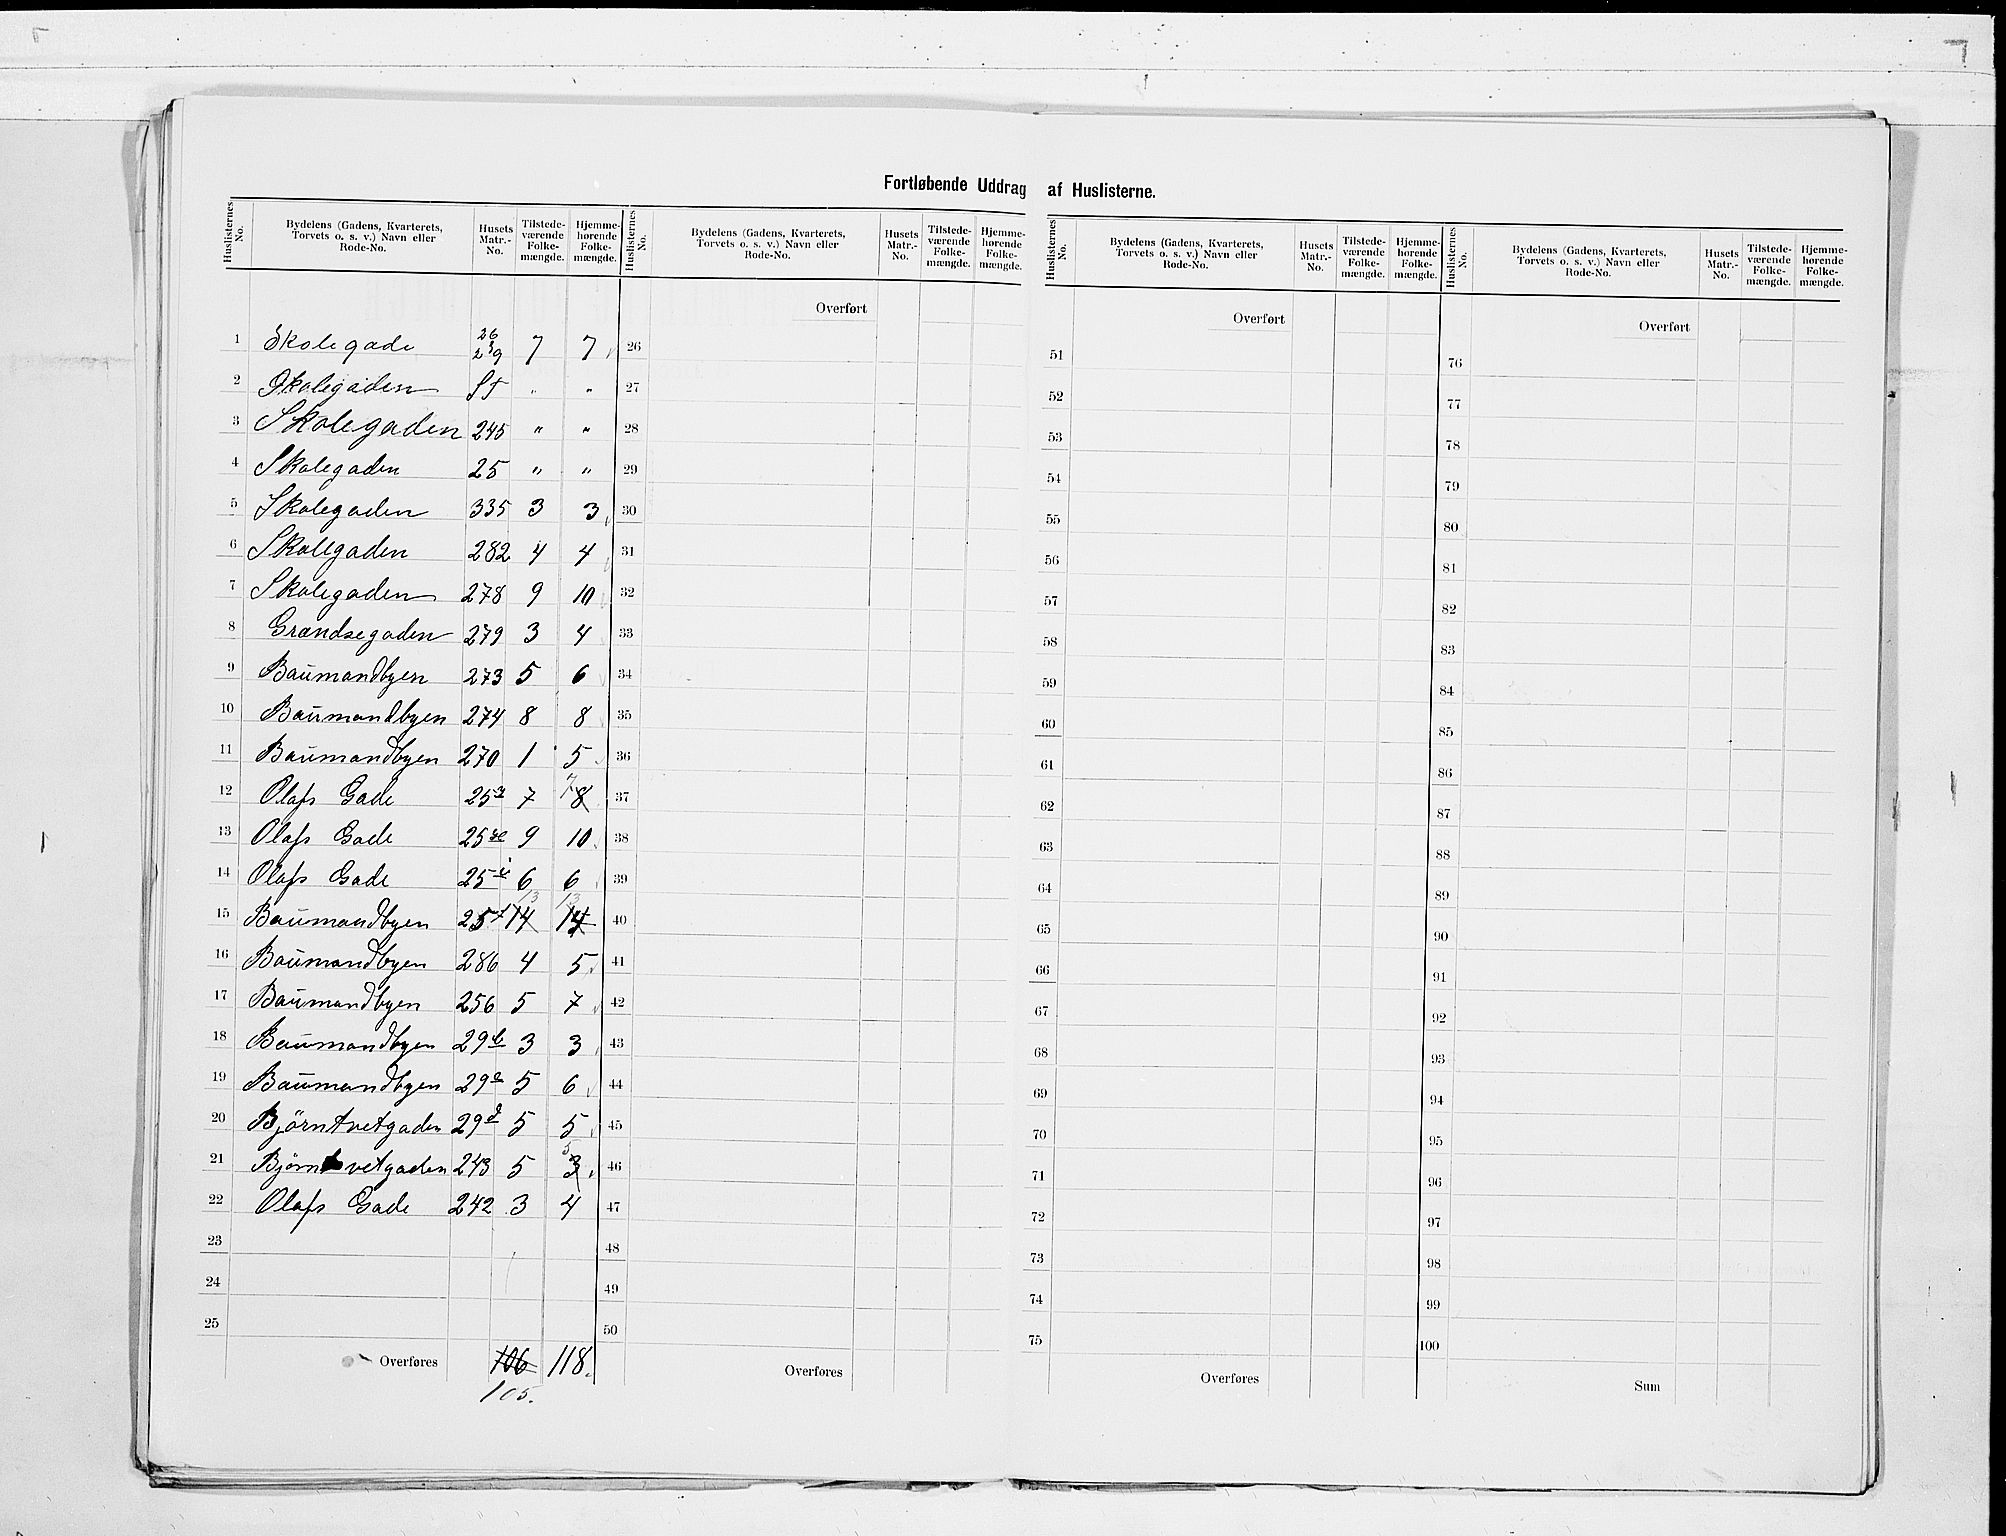 Fortløbende Uddrag af Huslisterne.
Huslisternes No. Bydelens (Gadens, Kvarterets, Torvets o. s. v.) Navn eller Rode-No. Husets Matr.-No. Tilstedeværende Folkemængde. Hjemmehørende Folkemængde.
1 Skolegade 26 7 7
2 Skolegaden " "
3 Skolegaden 245 " "
4 Skolegaden 25 " "
5 Skolegaden 335 3 3
6 Skolegaden 282 4 4
7 Skolegaden 278 9 10
8 Grændsegaden 279 3 4
9 Baumandbyen 273 5 6
10 Baumandbyen 274 8 8
11 Baumandbyen 270 1 5
12 Olafs Gade 25 7 8 7
13 Olafs Gade 25 9 10
14 Olafs Gade 25 6 6
15 Baumandbyen 25 14 13 14 13
16 Baumandbyen 286 4 5
17 Baumandbyen 256 5 7
18 Baumandbyen 29b 3 3
19 Baumandbyen 29 5 6
20 Björntvetgaden 29d 5 5
21 Björntvetgaden 243 5 3 5
22 Olafs Gade 242 3 4
23
24
25
Overføres 106 118.
105.
Huslisternes No. Bydelens (Gadens, Kvarterets, Torvets o. s. v.) Navn eller Rode-No. Husets Matr.-No. Tilstedeværende Folkemængde. Hjemmehørende Folkemængde.
Overført
26
27
28
29
30
31
32
33
34
35
36
37
38
39
40
41
42
43
44
45
46
47
48
49
50
Overføres
Huslisternes No. Bydelens (Gadens, Kvarterets, Torvets o. s. v.) Navn eller Rode-No. Husets Matr.-No. Tilstedeværende Folkemængde. Hjemmehørende Folkemængde.
Overført
51
52
53
54
55
56
57
58
59
60
61
62
63
64
65
66
67
68
69
70
71
72
73
74
75
Overføres
Huslisternes No. Bydelens (Gadens, Kvarterets, Torvets o. s. v.) Navn eller Rode-No. Husets Matr.-No. Tilstedeværende Folkemængde. Hjemmehørende Folkemængde.
Overført
76
77
78
79
80
81
82
83
84
85
86
87
88
89
90
91
92
93
94
95
96
97
98
99
100
Sum